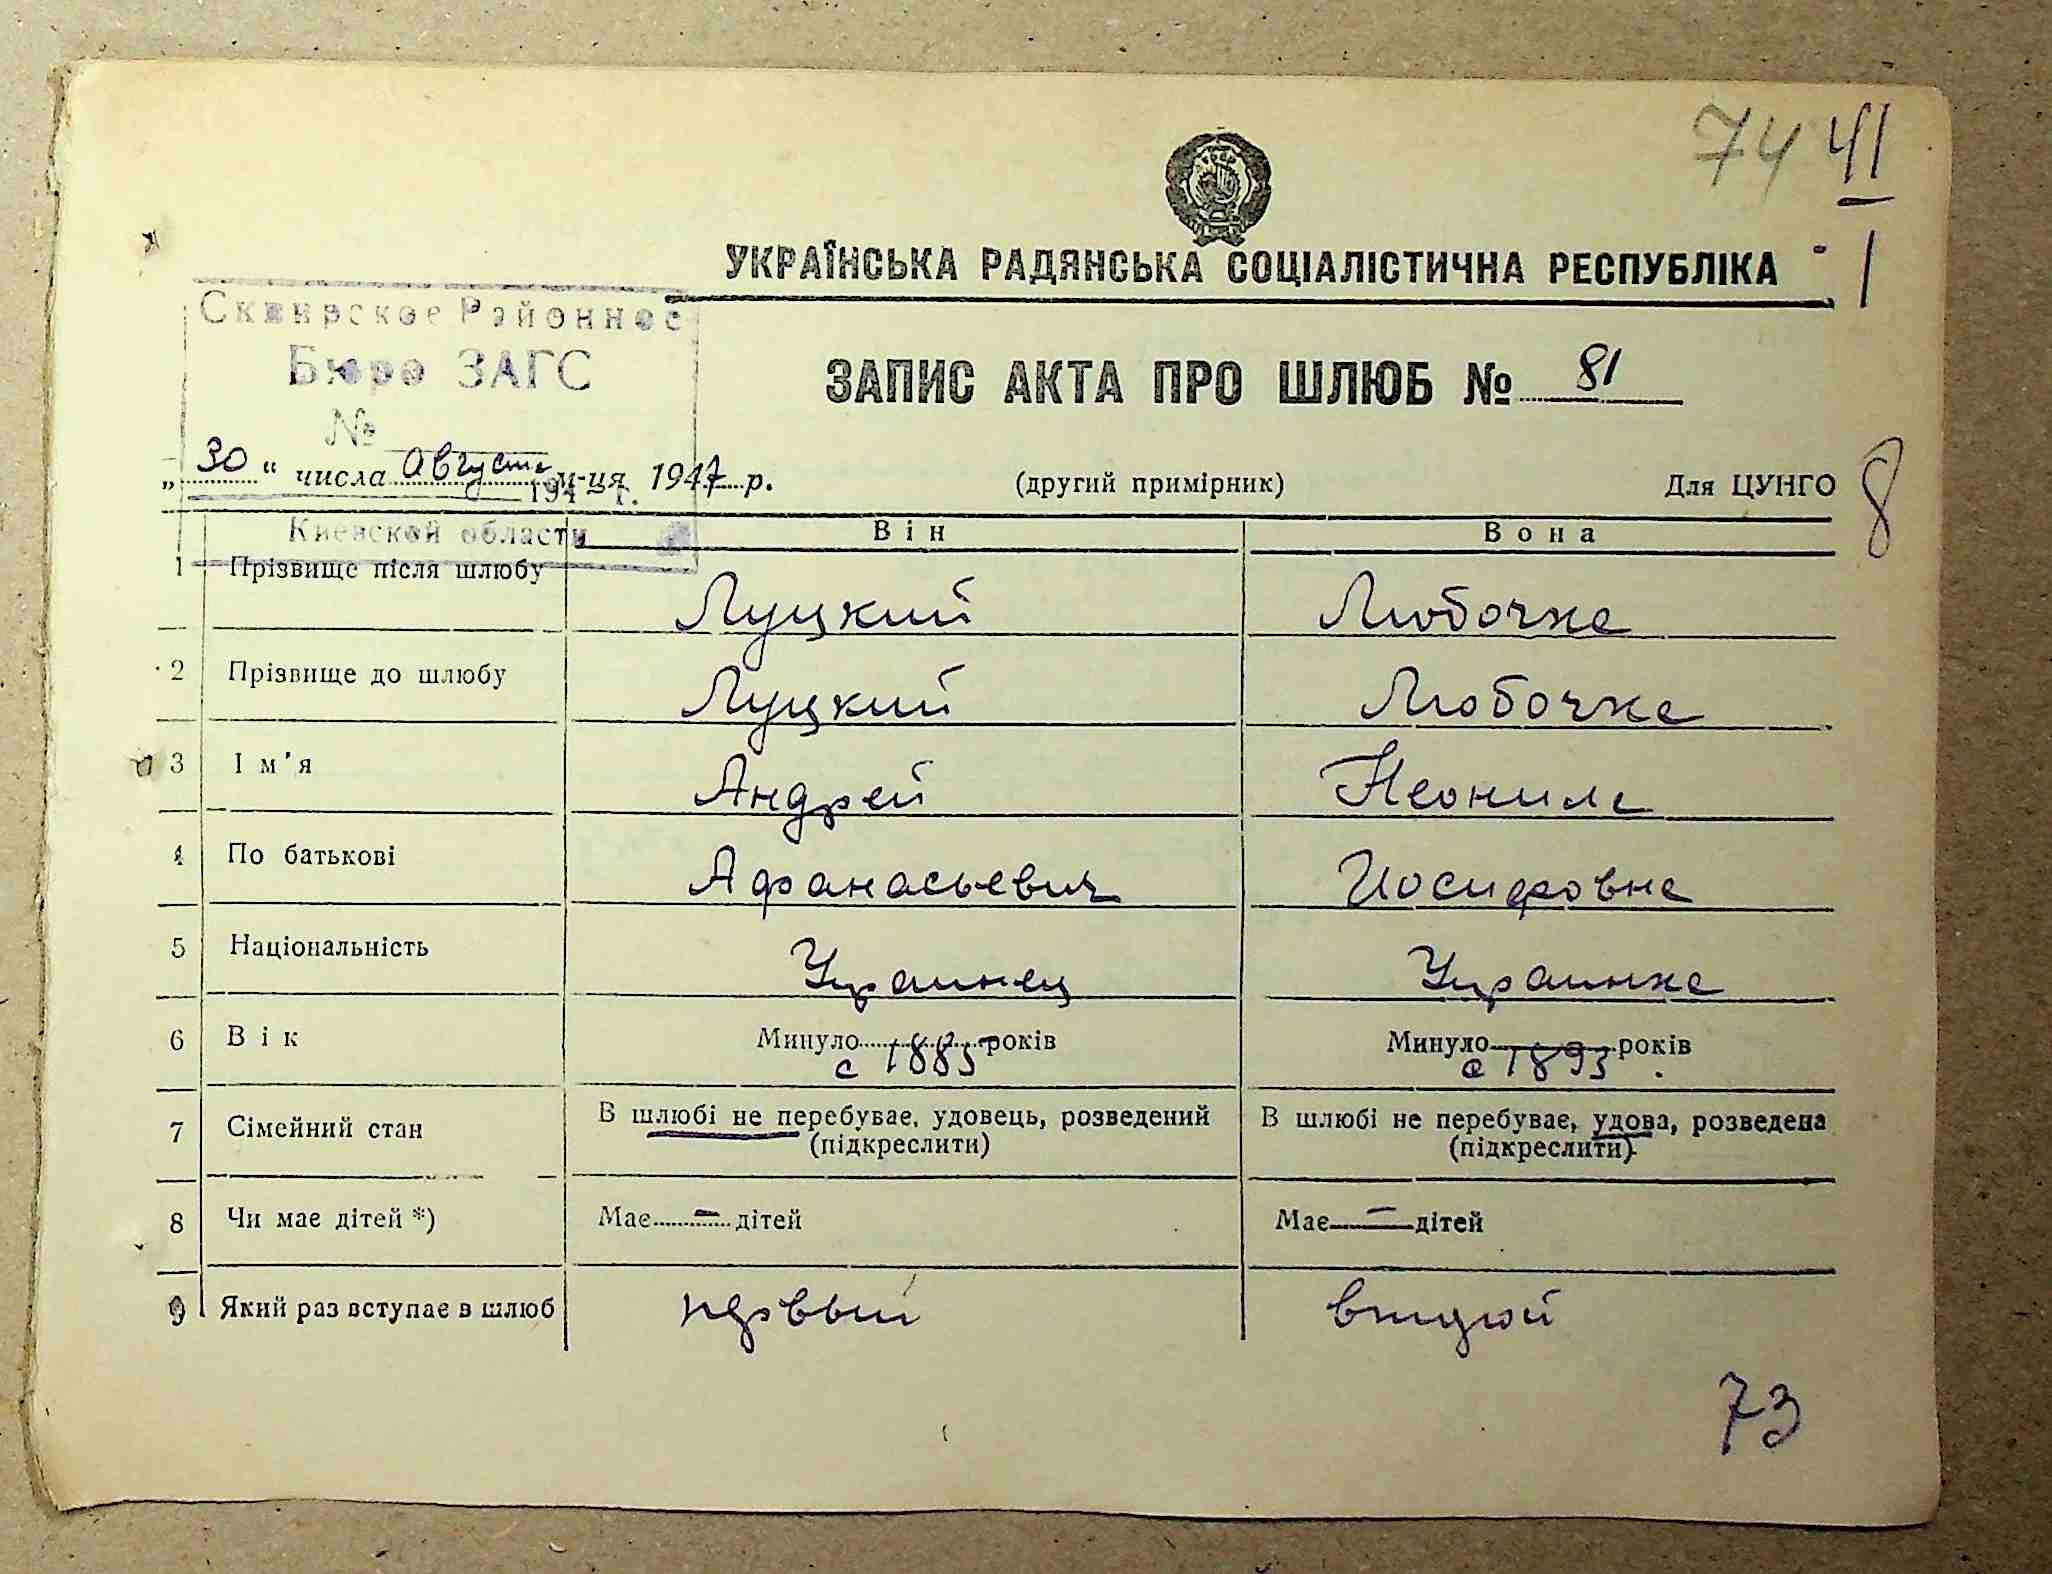 74 41
1
УКРАЇНСЬКА РАДЯНСЬКА СОЦІАЛІСТИЧНА РЕСПУБЛІКА
Сквирское Районное
Бюро ЗАГС
№
194 г.
Киевской области
ЗАПИС АКТА ПРО ШЛЮБ № 81
„30“ числа Августа м-ця 1947 р. (другий примірник) Для ЦУНГО
8
Він Вона
1 Прізвище після шлюбу Луцкий Любочка
2 Прізвище до шлюбу Луцкий Любочка
3 Ім'я Андрей Неонила
4 По батькові Афанасьевич Иосифовна
5 Національність Украинец Украинка
6 Вік Минуло с 1885 років Минуло с 1893 років
7 Сімейний стан В шлюбі не перебуває, удовець, розведений (підкреслити) В шлюбі не перебуває, удова, розведена (підкреслити)
8 Чи має дітей *) Має – дітей Має – дітей
9 Який раз вступає в шлюб первый второй
73